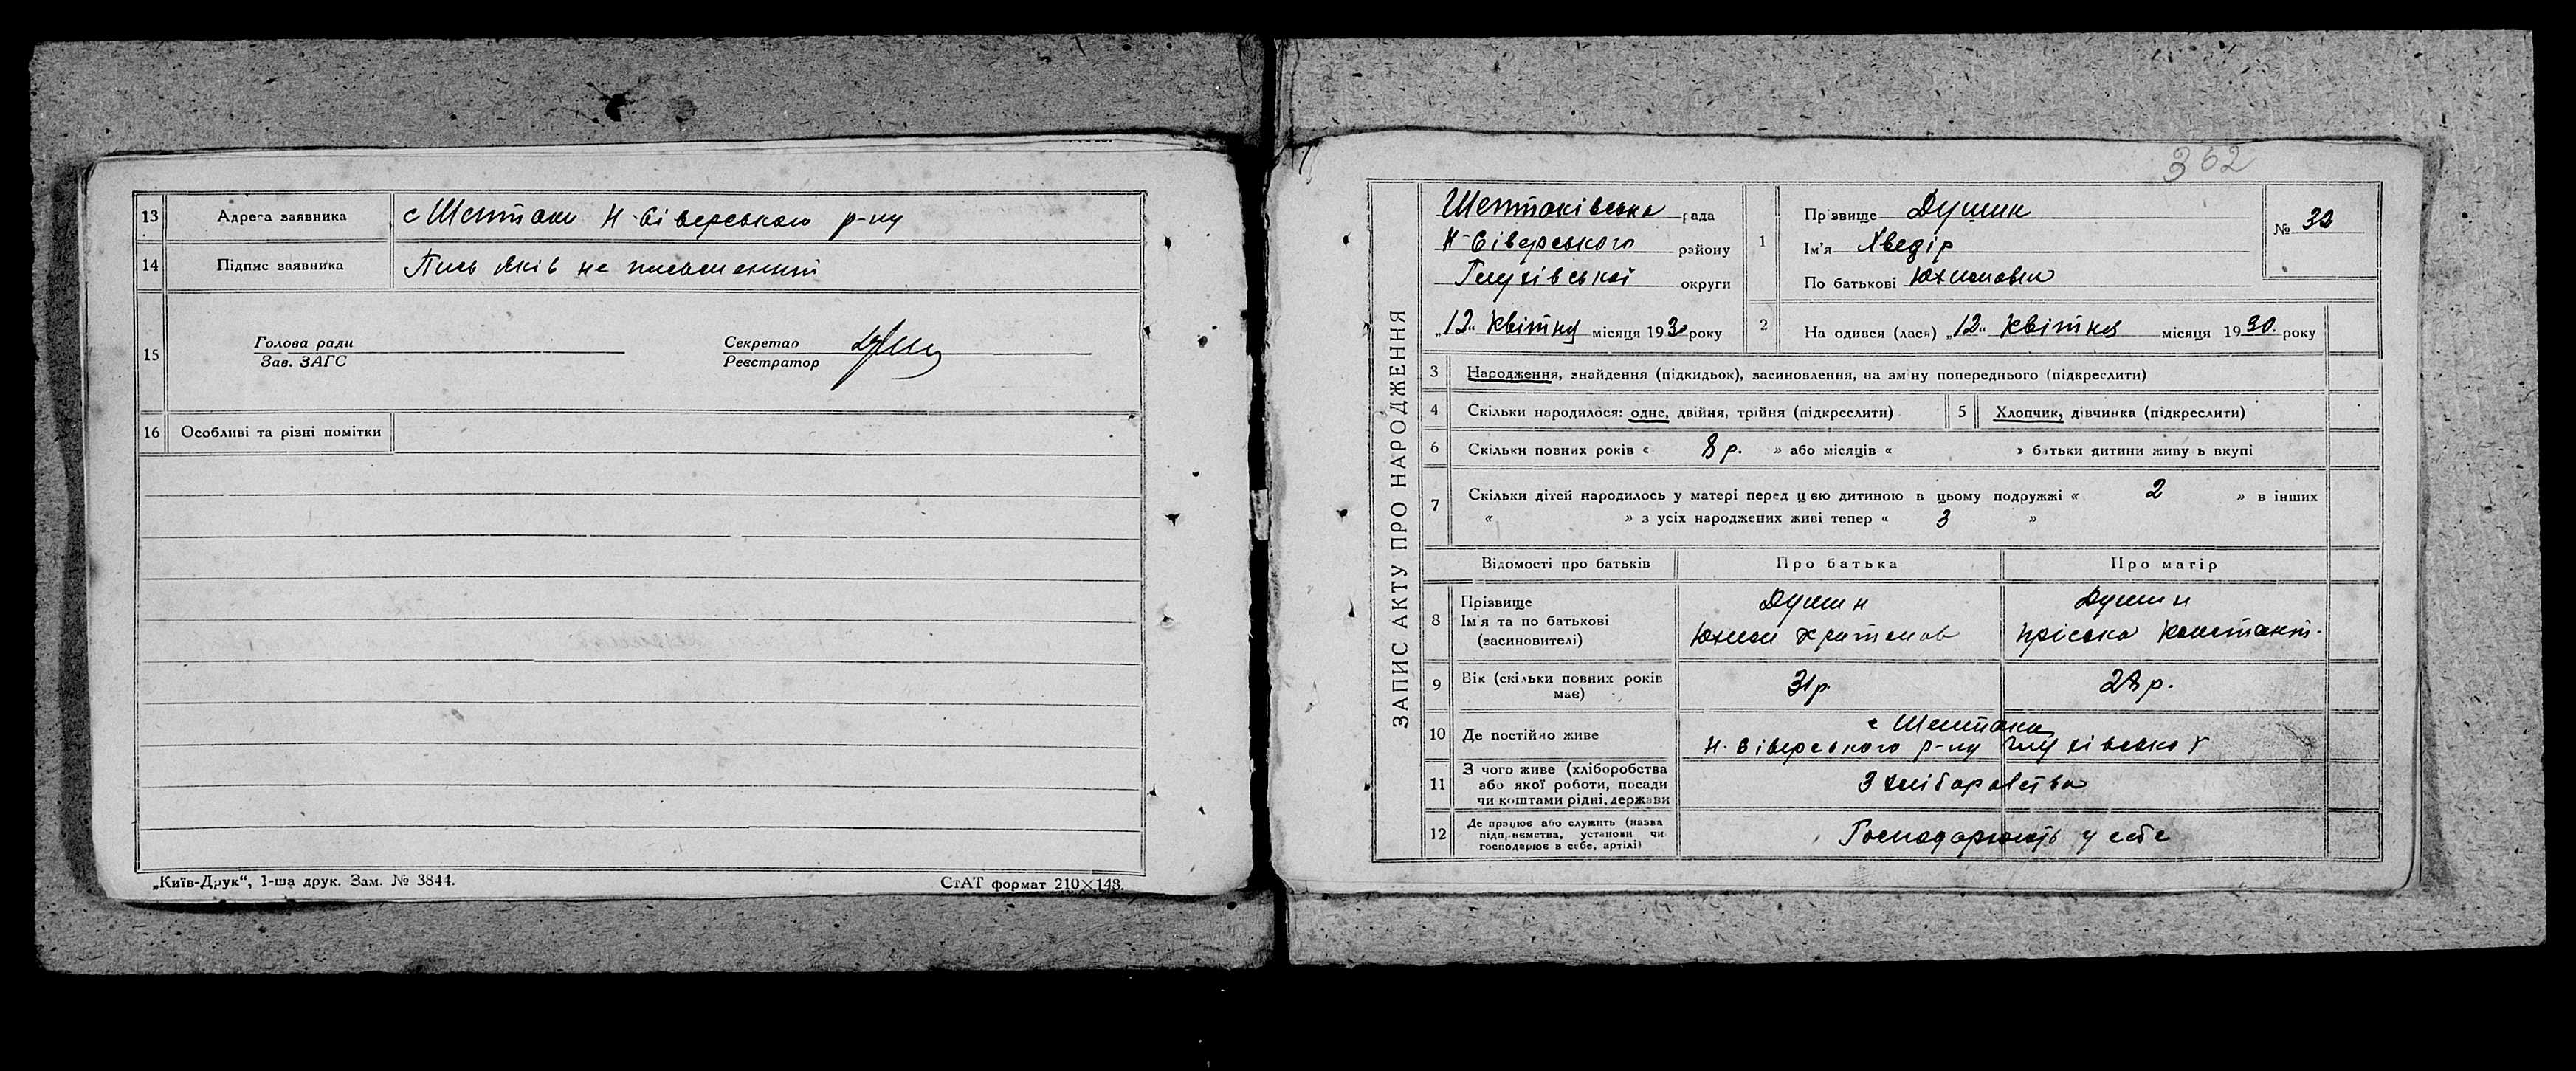 13 Адреса заявника с Шептаки Н-Сіверського р-ну
14 Підпис заявника Яків не письменний
15 Голова ради
Зав. ЗАГС
Секретар
Реєстратор
16 Особливі та різні помітки
„Київ-Друк“, 1-ша друк. Зам. № 3844.
СтАТ формат 210×143.
362
ЗАПИС АКТУ ПРО НАРОДЖЕННЯ
Шептаківська рада
Н-Сіверського району
Глухівської округи
„12“ квітня місяця 1930 року
1 Прізвище Душин
Ім'я Хведір
По батькові Юхимович
№
2 На одився (лась) „12“ квітня місяця 1930. року
3 Народження, знайдення (підкидьок), засиновлення, на зміну попереднього (підкреслити)
4 Скільки народилося: одне, двійня, трійня (підкреслити)
5 Хлопчик, дівчинка (підкреслити)
6 Скільки повних років « 8 р. » або місяців « » батьки дитини живу ь вкупі
7 Скільки дітей народилось у матері перед цією дитиною в цьому подружжі « 2 » в інших
« » з усіх народжених живі тепер « 3 »
Відомості про батьків Про батька Про матір
8 Прізвище
Ім'я та по батькові
(засиновителі)
Душин
Юхим
Душин
Пріська Констант.
9 Вік (скільки повних років
має)
31 р.
28 р.
10 Де постійно живе
с Шептаки
Н-Сіверського р-ну Глухівської
11 З чого живе (хліборобства
або якої роботи, посади
чи коштами рідні, держави
З хліборобства
12 Де працює або служить (назва
підприємства, установи чи
господарює в себе, артілі)
Господарюють у себе